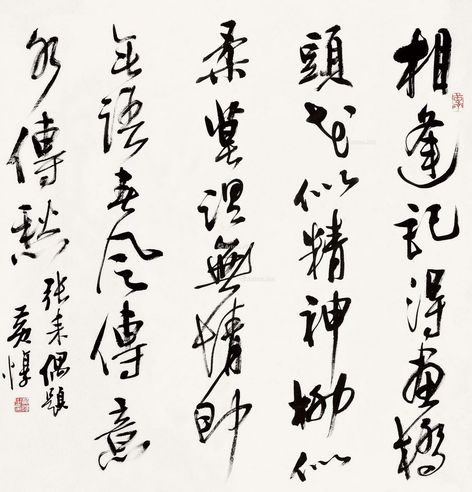 相逢記得畫橋
頭花似精神柳似
柔莫謂無情即
無語春風傳意
水傳愁
张耒偶題
黄惇